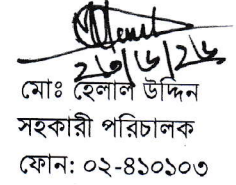 ২৩/৬/২৬
মোঃ হেলাল উদ্দিন
সহকারী পরিচালক
ফোন: ০২-৪১০১০৩